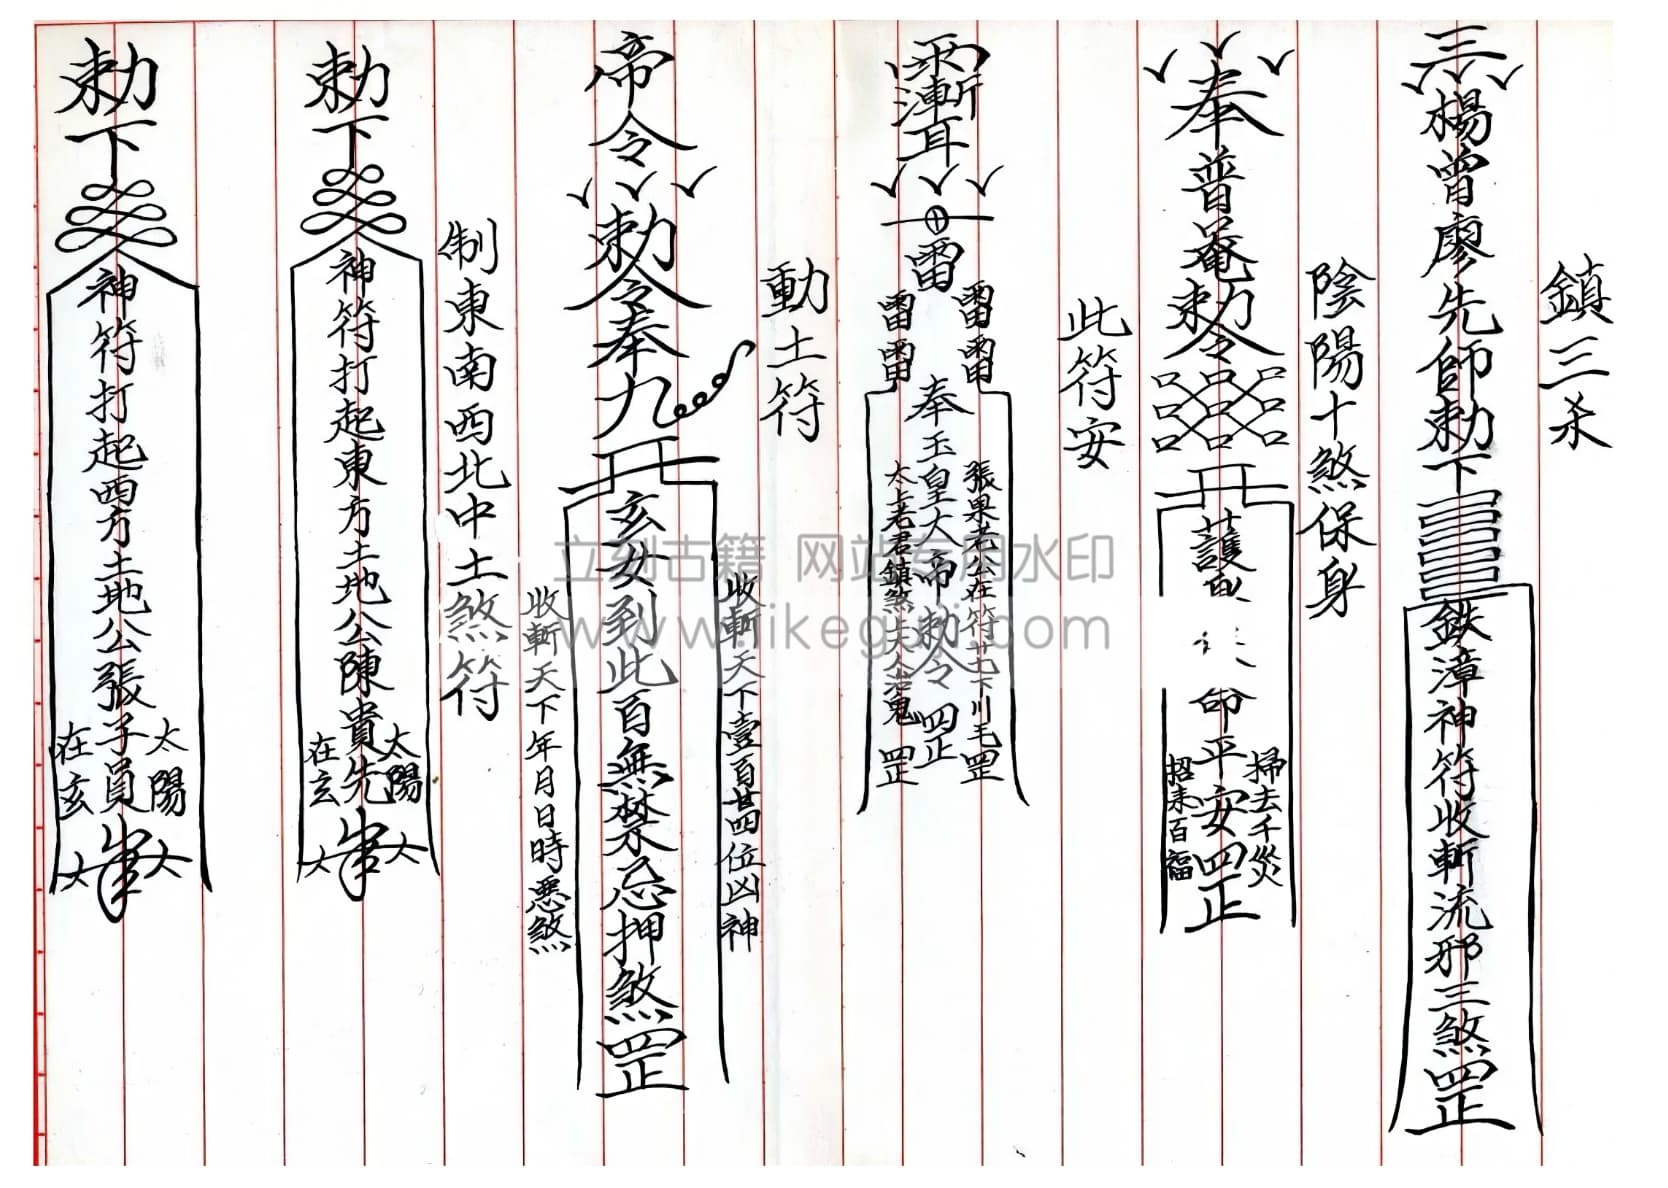 鎮三杀
三楊曾廖先師勅下
鉄漳神符收斬流邪三煞罡
陰陽十煞保身
奉普菴勅令
護
命平安罡
掃去千災
招来百福
此符安
漸耳
雷
雷雷
雷雷
奉玉皇大帝勅令罡
張果老公在符
罡
太上老君鎮煞
鬼罡
動土符
帝令
勅令奉九
玄女到此百無禁忌押煞罡
收斬天下壹百廿四位凶神
收斬天下年月日時悪煞
制東南西北中土煞符
勅下
神符打起東方土地公陳貴先
太陽
在玄
勅下
神符打起西方土地公張子員
太陽
在玄
立刻古籍 网站专用水印
www.likeguji.com